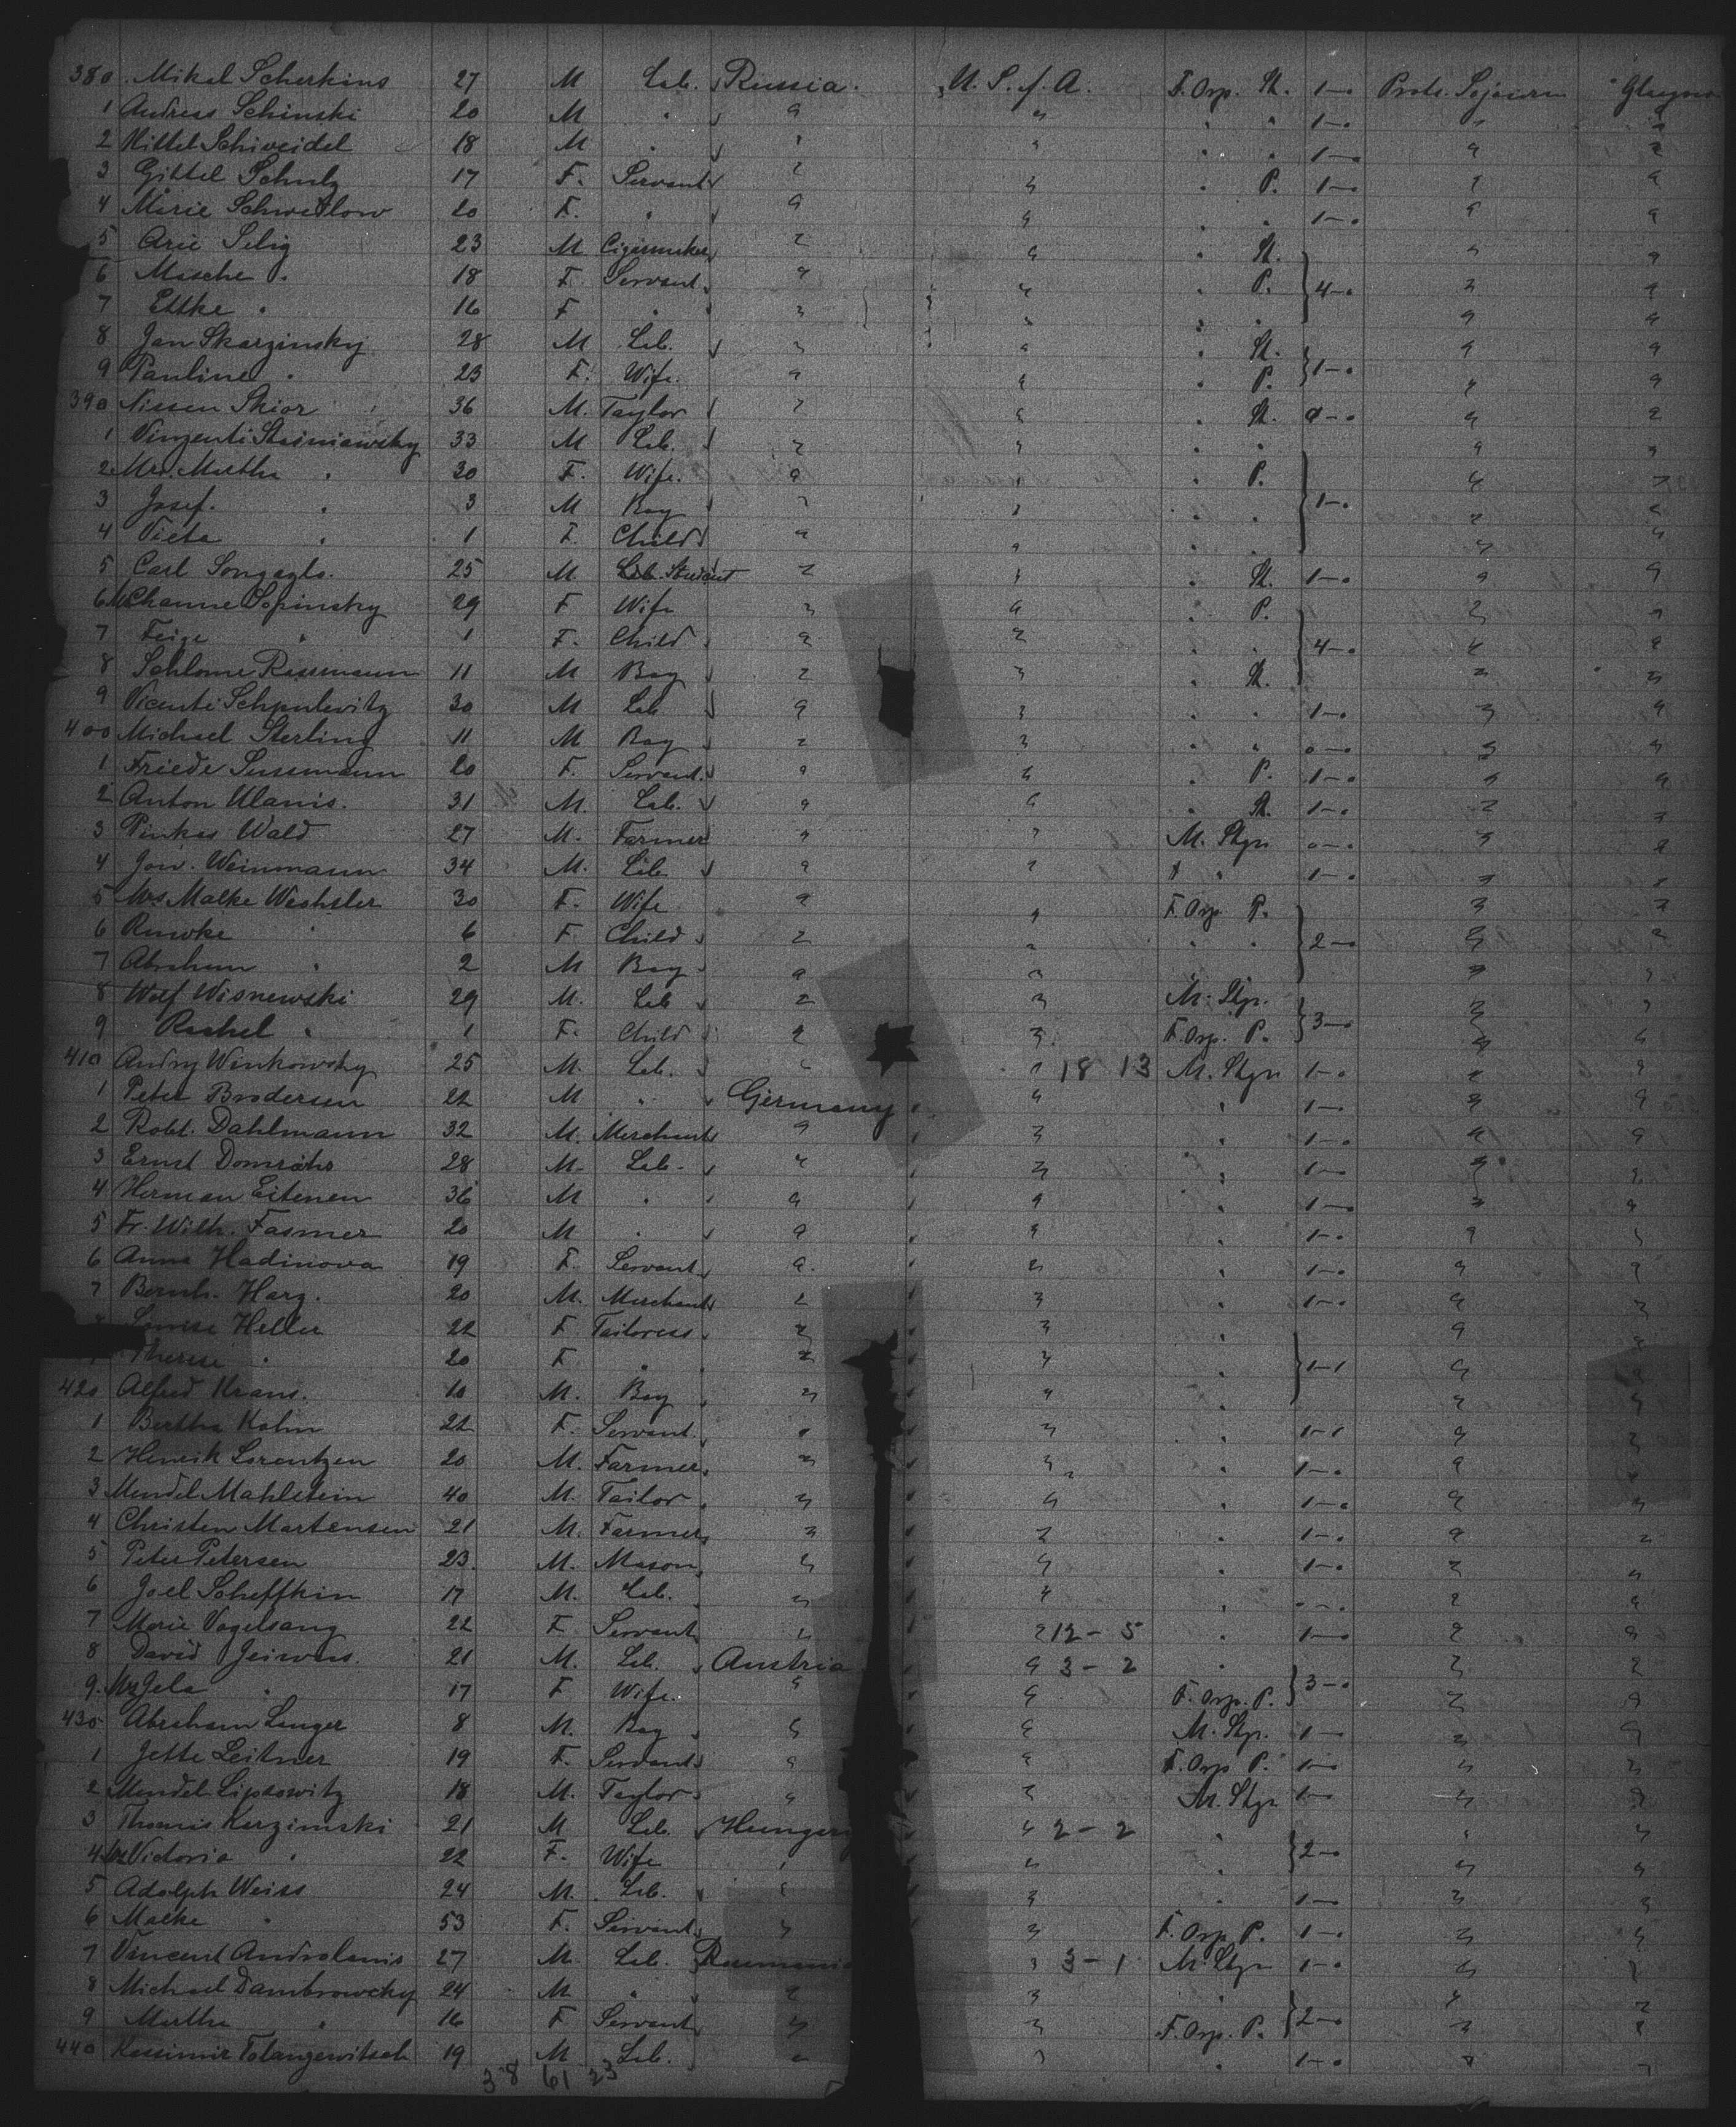 380 Mikal Scherkins 27 M Lab. Russia. U. S. of A. F. Orp. St. 1-0 Prote. Sojourn Glasgow
1 Andreas Schinski 20 M " " " " " 1-0 " "
2 Kittel Schweidel 18 M " " " " " 1-0 " "
3 Gittel Schulz 17 F. Servant " " " P. 1-0 " "
4 Marie Schwetlow 20 F. " " " " " 1-0 " "
5 Arie Selig 23 M Cigarmaker " " " St. " "
6 Masche " 18 F. Servant " " " P. 4-0 " "
7 Ettke " 16 F " " " " " " "
8 Jan Skarzinsky 28 M Lab. " " " St. " "
9 Pauline " 23 F. Wife. " " " P. 1-0 " "
390 Nissen Skior 36 M. Taylor " " " St. 0-0 " "
1 Vinzenti Staniewsky 33 M Lab. " " " " " "
2 Mrs. Martha " 30 F. Wife. " " " P. " "
3 Josef. " 3 M Boy " " " " 1-0 " "
4 Vieta " 1 F. Child " " " " " "
5 Carl Songaylo. 25 M. Student " " " St. 1-0 " "
6 Mrs Channe Sopinsky 29 F Wife " " " P. " "
7 Feige " 1 F. Child " " " " 4-0 " "
8 Schlome Rossmann 11 M Boy " " " St. " "
9 Vicenti Schpulevitz 30 M Lab " " " " 1-0 " "
400 Michael Sterling 11 M Boy " " " " 0-0 " "
1 Friede Sussmann 20 F. Servant " " " P. 1-0 " "
2 Anton Ulanis. 31 M. Lab. " " " St. 1-0 " "
3 Pinkas Wald 27 M. Farmer " " M. Stgn 0-0 " "
4 Jow. Weinmann 34 M. Lab. " " " " 1-0 " "
5 Mrs Malke Wechsler 30 F. Wife " " F. Orp P. " "
6 Riwke " 6 F Child " " " " 2-0 " "
7 Abraham " 2 M Boy " " " " " "
8 Wolf Wisnewski 29 M. Lab " " M. Stgn. " "
9 Rachel " 1 F. Child " " F. Orp. P. 3-0 " "
410 Andry Winkowsky 25 M. Lab. " " 18 13 M. Stgn 1-0 " "
1 Peter Brodersen 22 M " Germany " " 1-0 " "
2 Robt. Dahlmann 32 M. Merchant " " " 1-0 " "
3 Ernst Domröhs 28 M. Lab. " " " 1-0 " "
4 Herman Eitenen 36 M " " " " 1-0 " "
5 Fr. Wilh. Fasmer 20 M " " " " 1-0 " "
6 Anna Hadinova 19 F. Servant " " " 1-0 " "
7 Bernh. Harz. 20 M. Merchant " " " 1-0 " "
Louise Heller 22 F Tailoress " " " " "
Therese " 20 F " " " " 1-1 " "
420 Alfred Krans. 10 M. Boy " " " " "
1 Bertha Kohn 22 F. Servant " " " 1-1 " "
2 Henrik Lorentzen 20 M. Farmer " " " 1-0 " "
3 Mendel Mahlstein 40 M. Tailor " " " 1-0 " "
4 Christen Martensen 21 M. Farmer " " " 1-0 " "
5 Peter Petersen 23. M. Mason " " " 1-0 " "
6 Joel Scheffkin 17 M. Lab. " " " 0-0 " "
7 Marie Vogelsang 22 F. Servant " " 12-5 " 1-0 " "
8 David Jeiwers. 21 M. Lab. Austria " 3-2 " " "
9. Mrs Jela " 17 F Wife. " " F. Orp. P. 3-0 " "
430 Abraham Langer 8 M. Boy " " M. Stgn. 1-0 " "
1 Jette Leitner 19 F. Servant " " F. Orp P. 1-0 " "
2 Mendel Lipsowitz 18 M. Taylor " " M. Stgn 1-0 " "
3 Thomas Karzimski 21 M Lab. Hungary " 2-2 " " "
4 Mrs Victoria " 22 F. Wife " " " 2-0 " "
5 Adolph Weiss 24 M. Lab. " " " 1-0 " "
6 Malke " 53 F. Servant " " F. Orp P. 1-0 " "
7 Vincent Androlanis 27 M. Lab. Roumania " 3-1 M. Stgn 1-0 " "
8 Michael Dambrowsky 24 M " " " " " "
9 Martha " 16 F Servant " " F. Orp. P. 2-0 " "
440 Kasimir Tolanzewitsch 19 M Lab. " " " 1-0 " "
38 61 23